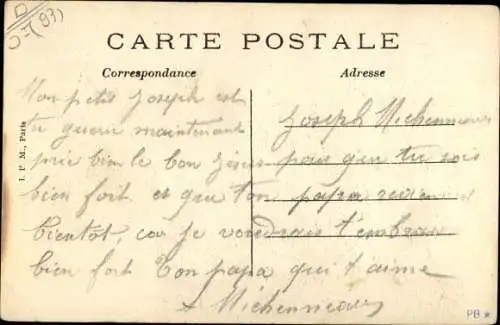 D
J-(93)
CARTE POSTALE
Correspondance
Adresse
I. P. M., Paris
Mon petit Joseph est
tu gueri maintenant
prie bien le bon Jésus pour qu'en tu sois
bien fort et que ton papa revienne
bientôt, car je voudrais t'embrasser
bien fort ton papa qui t'aime
Joseph Michenneau
Michenneau
PB *